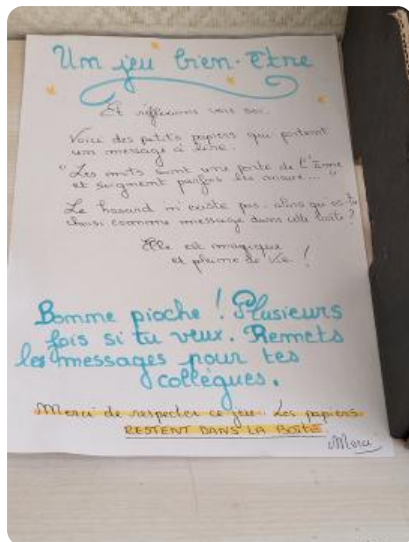 Un jeu bien-Être
Et réflexions vers soi.
Voici des petits papiers qui portent
un message à lire.
"Les mots sont une porte de l'Âme
et soignent parfois les maux..."
Le hasard n'existe pas. alors qu'as-tu
choisi comme message dans cette boîte ?
Elle est magique
et pleine de vie !
Bonne pioche ! Plusieurs
fois si tu veux. Remets
les messages pour tes
collègues.
Merci de respecter ce jeu. Les papiers
RESTENT DANS LA BOÎTE
Merci